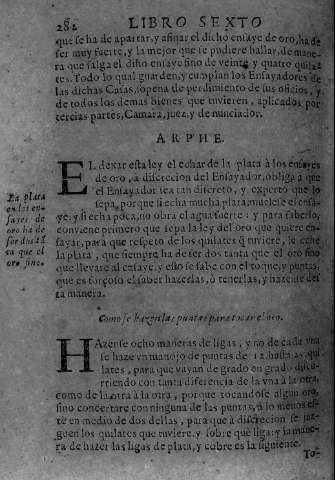 282 LIBRO SEXTO
que se ha de apartar, y afinar el dicho ensaye de oro, ha de
ser muy fuerte, y la mejor que se pudiere hallar, de mane-
ra que salga el dicho ensaye fino de veinte y quatro quila-
tes. Todo lo qual guarden, y cumplan los Ensayadores de
las dichas Casas, so pena de perdimiento de sus oficios, y
de todos los demas bienes que tuvieren, aplicados por
tercias partes, Camara, juez, y denunciador.
ARPHE.
EL dexar esta ley el echar de la plata à los ensayes
de oro, à discrecion del Ensayador, obliga à que
el Ensayador sea tan discreto, y experto que lo
sepa, porque si echa mucha plata, muelese el ensa-
ye: y si echa poca, no obra el agua fuerte: y para saberlo,
conviene primero que sepa la ley del oro que quiere en-
sayar, para que respeto de los quilates que tuviere, le eche
la plata, que siempre ha de ser dos tanta que el oro fino
que llevare al ensaye, y esto se sabe con el toque, y puntas,
que es forçoso el saber hazerlas, ò tenerlas, y hazense desta
manera.
La plata
en los en-
sayes de
oro ha de
ser dos tã
ta que el
oro fino.
Como se hazen las puntas para tocar el oro.
HAzense ocho maneras de ligas, y no de cada vna
se haze vn manojo de puntas de 12. hasta 24. qui
lates, para que vayan de grado en grado discu-
rriendo con tanta diferencia de la vna à la otra,
como de la otra à la otra, porque tocandose algun oro,
sino concertare con ninguna de las puntas, à lo menos es-
tè en medio de dos dellas, para que à discrecion se juz-
guen los quilates que tuviere, y sobre que liga: y la mane-
ra de hazer las ligas de plata, y cobre es la siguiente.
To-